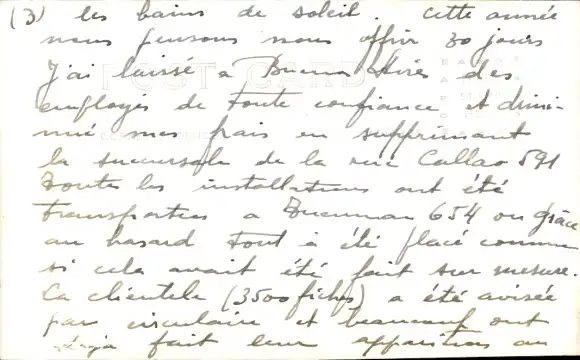 (3) les bains de soleil. Cette année
nous pensons nous offrir 30 jours
J'ai laissé a Buenos Aires des
employes de toute confiance et dimi-
nué mes frais en supprimant
la succursale de la rue Callao 591
Toutes les installations ont été
transportées a Tucuman 654 ou grâce
au hasard tout à été placé comme
si cela avait été fait sur mesure.
La clientele (3500 fiches) a été avisée
par circulaire et beaucoup ont
déja fait leur apparition au
POST CARD